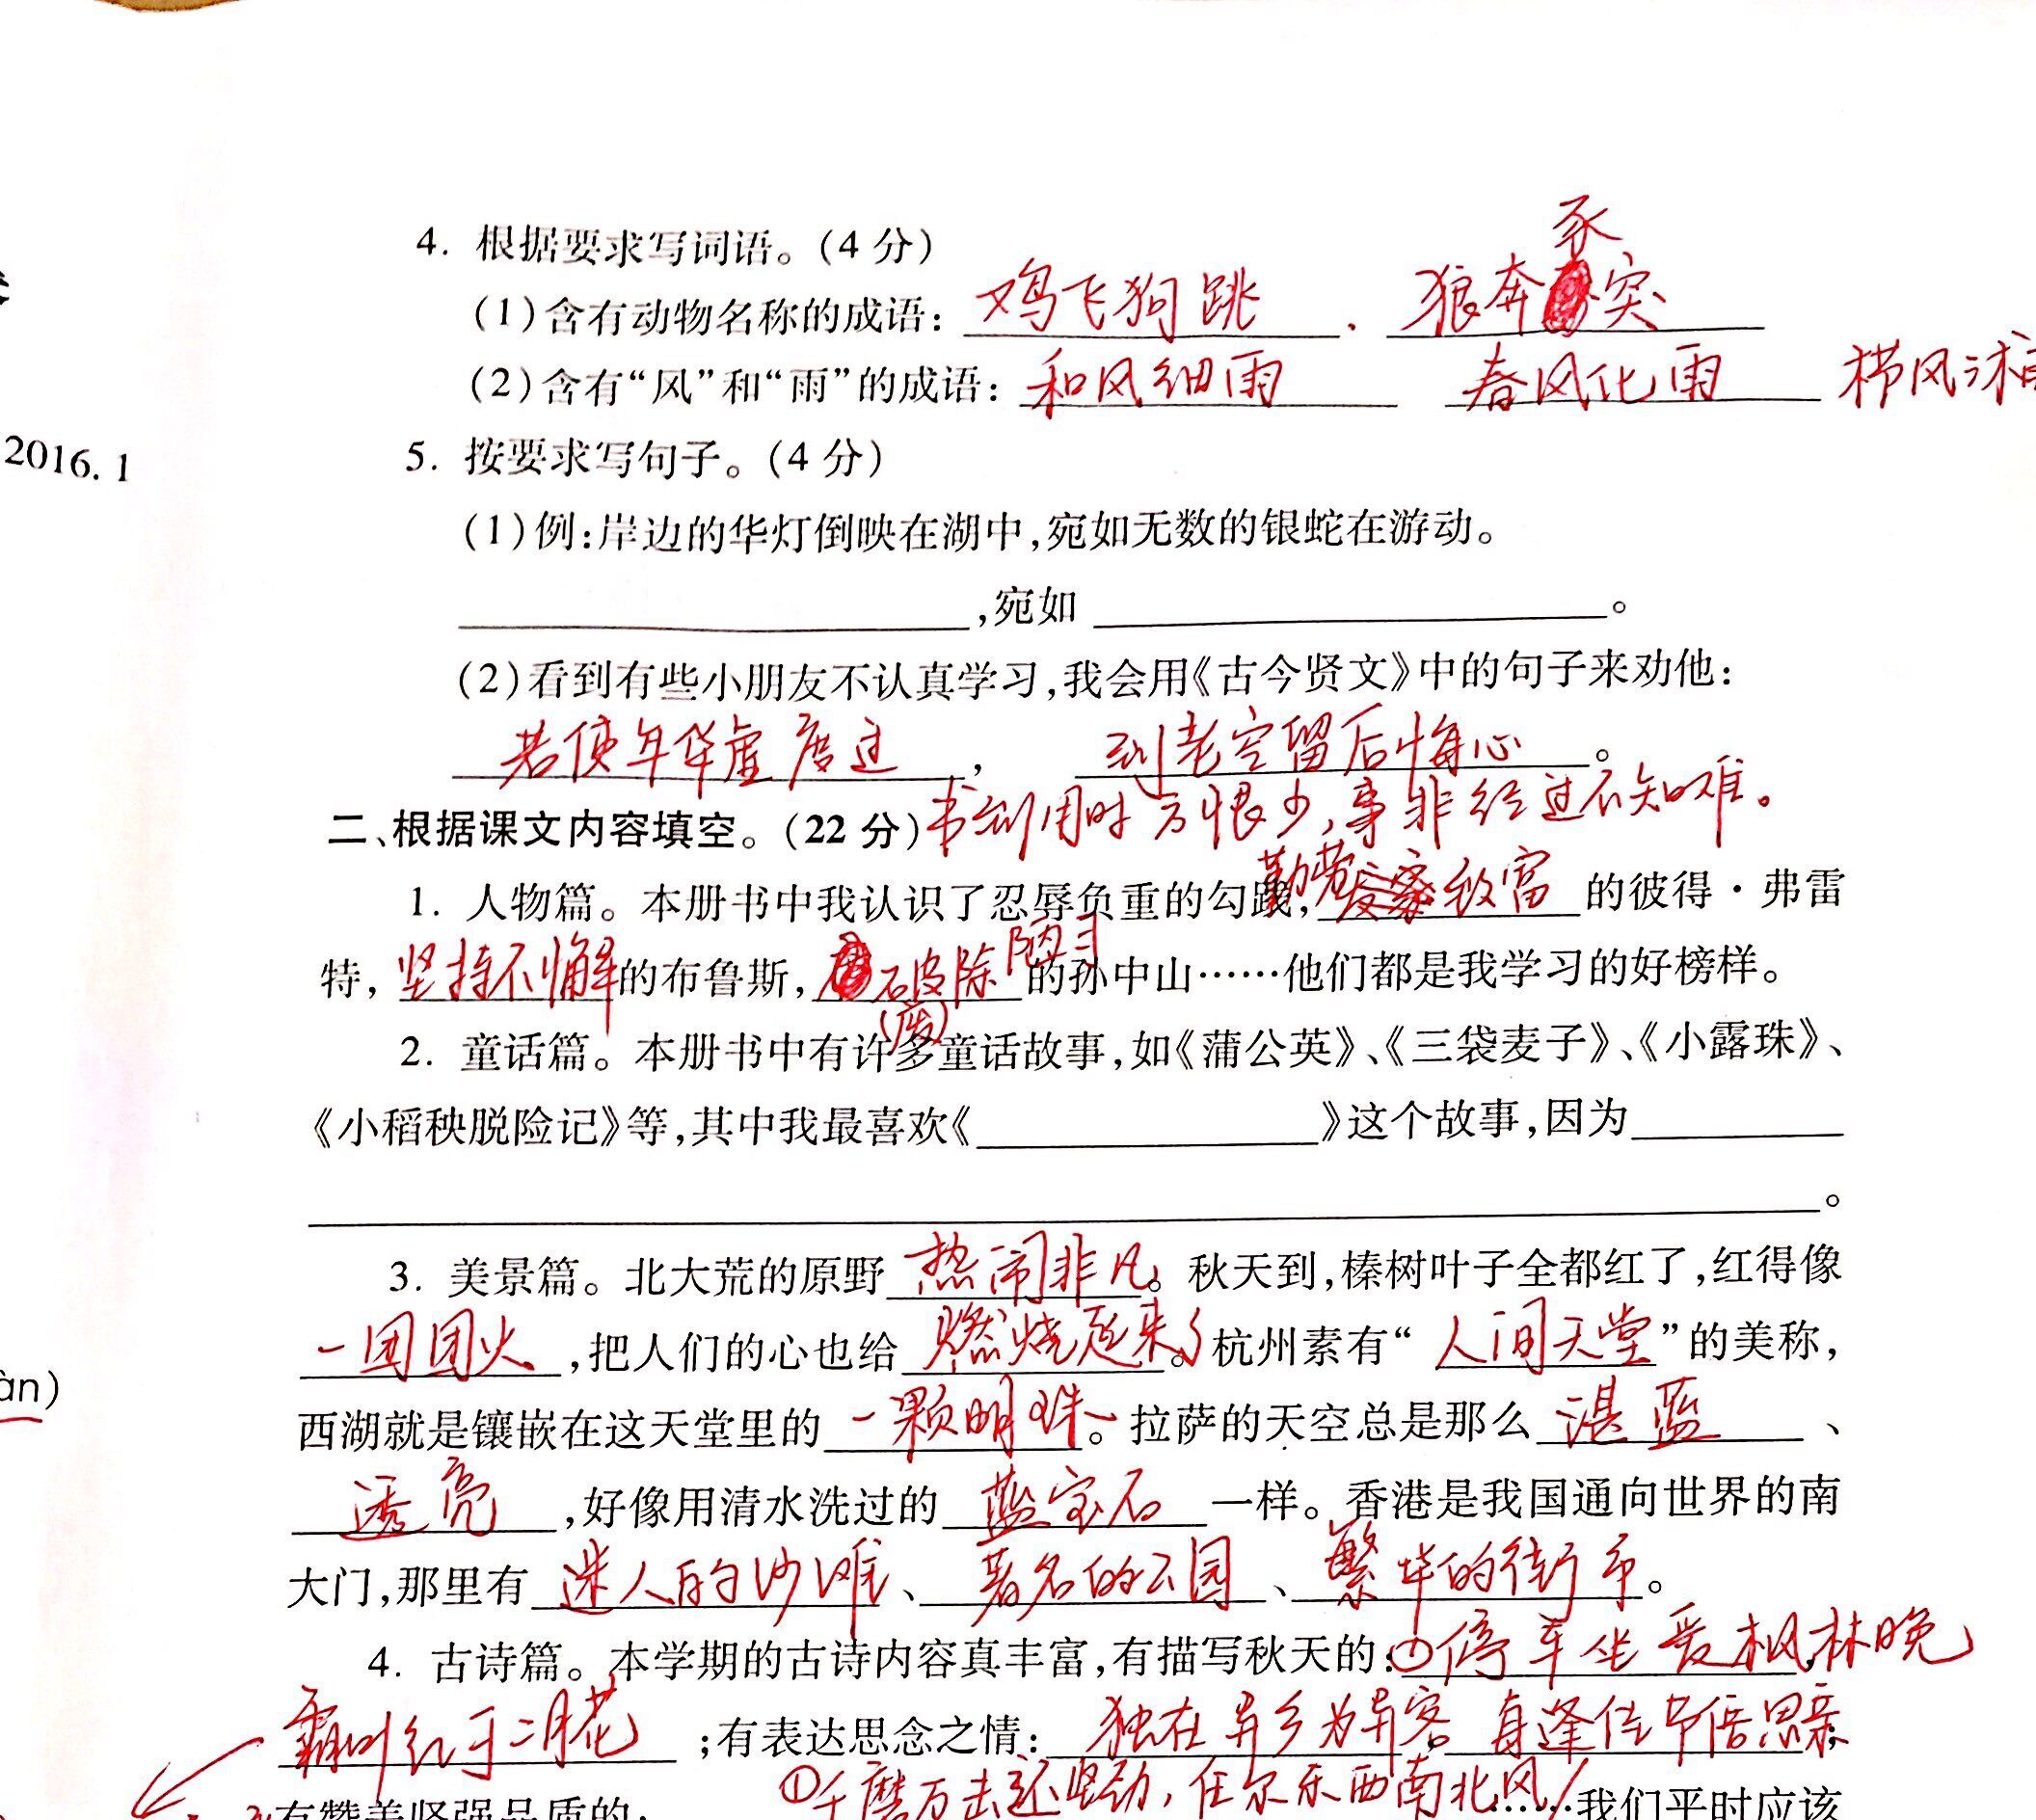 4. 根据要求写词语。(4分)
豕
(1)含有动物名称的成语: 鸡飞狗跳 . 狼奔突
(2)含有“风”和“雨”的成语: 和风细雨 春风化雨 栉风沐雨
2016.1
5. 按要求写句子。(4分)
(1)例:岸边的华灯倒映在湖中,宛如无数的银蛇在游动。
,宛如 。
(2)看到有些小朋友不认真学习,我会用《古今贤文》中的句子来劝他:
若使年华虚度过 , 到老空留后悔心 。
二、根据课文内容填空。(22分) 书到用时方恨少,事非经过不知难。
1. 人物篇。本册书中我认识了忍辱负重的勾践, 勤劳致富 的彼得·弗雷
特, 坚持不懈 的布鲁斯, 破除陋习 的孙中山……他们都是我学习的好榜样。
(废)
2. 童话篇。本册书中有许多童话故事,如《蒲公英》、《三袋麦子》、《小露珠》、
《小稻秧脱险记》等,其中我最喜欢《 》这个故事,因为
。
3. 美景篇。北大荒的原野 热闹非凡 。秋天到,榛树叶子全都红了,红得像
一团团火 ,把人们的心也给 燃烧起来了 。杭州素有“ 人间天堂 ”的美称,
àn)
西湖就是镶嵌在这天堂里的 一颗明珠 。拉萨的天空总是那么 湛蓝 、
透亮 ,好像用清水洗过的 蓝宝石 一样。香港是我国通向世界的南
大门,那里有 迷人的沙滩 、 著名的公园 、 繁华的街市 。
4. 古诗篇。本学期的古诗内容真丰富,有描写秋天的: ①停车坐爱枫林晚 ,
霜叶红于二月花 ;有表达思念之情: 独在异乡为异客 , 每逢佳节倍思亲 ;
有赞美坚强品质的: ①千磨万击还坚劲,任尔东西南北风 ……我们平时应该